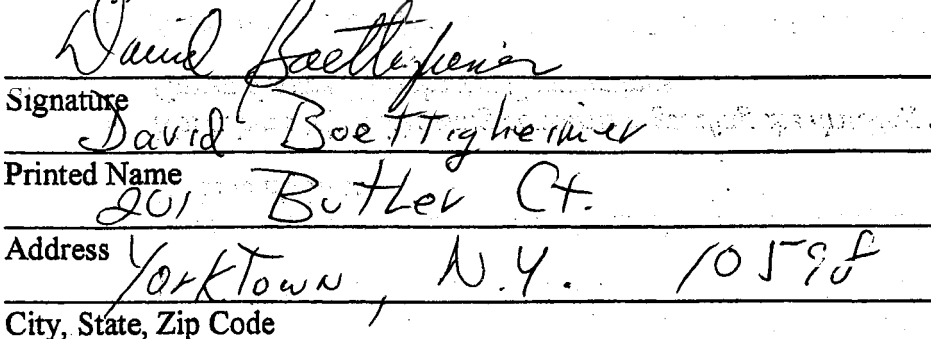 David Boettigheimer
Signature
David Boettigheimer
Printed Name
201 Butler Ct.
Address
Yorktown, N.Y. 10598
City, State, Zip Code